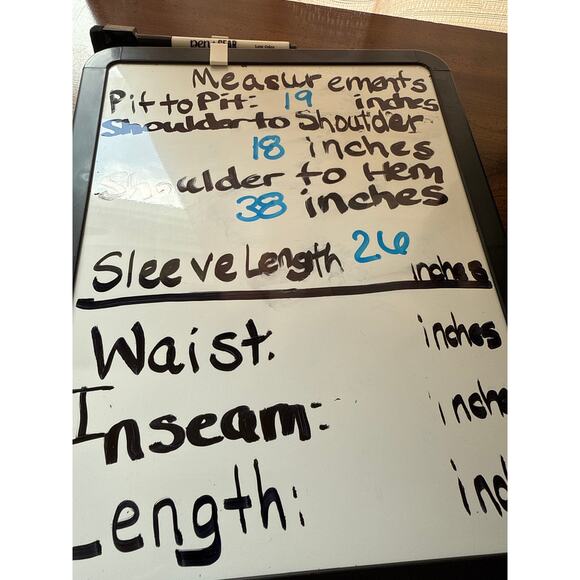 Measurements
Pit to Pit: 19 inches
Shoulder to Shoulder
18 inches
Shoulder to Hem
38 inches
Sleeve Length 26 inches
Waist: inches
Inseam: inch
Length: inc